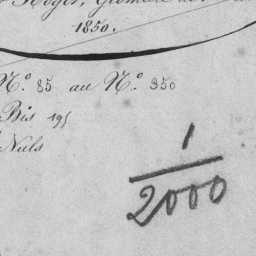 Géomètre
1850.
N.º 85 au N.º 350
Bis 195
Nuls
1
2000